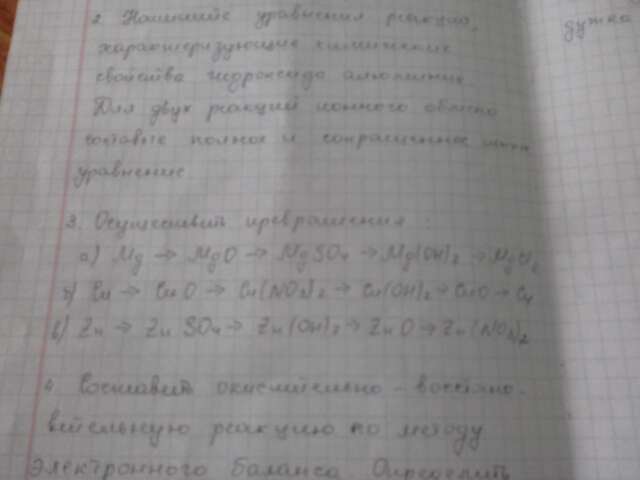 2 Напишите уравнения реакций,
характеризующие химические
свойства гидроксида алюминия.
Для двух реакций ионного обмена
составьте полное и сокращенное
уравнение
3. Осуществить превращения :
а) Mg → MgO → MgSO4 → Mg(OH)2 → MgCl2
б) Cu → CuO → Cu(NO3)2 → Cu(OH)2 → CuO → Cu
в) Zn → ZnSO4 → Zn(OH)2 → ZnO → Zn(NO3)2
4 Составить окислительно - восстано-
вительную реакцию по методу
электронного баланса Определить